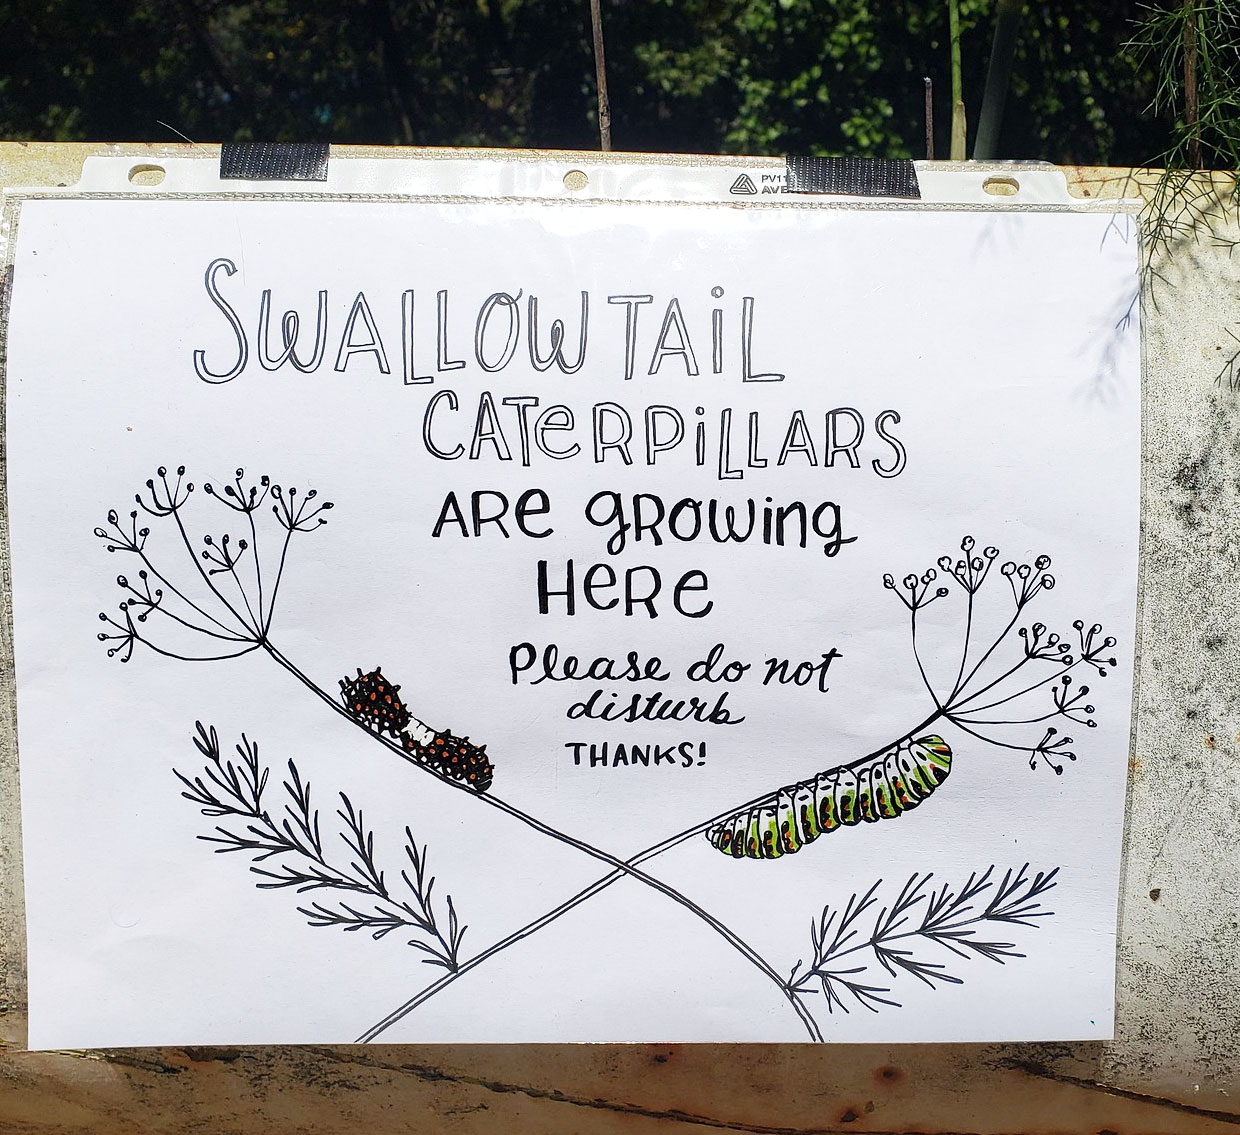 PV11
AVE
SWALLOWTAIL
CATeRPiLLARS
ARe gROwing
HeRe
Please do not
disturb
THANKS!